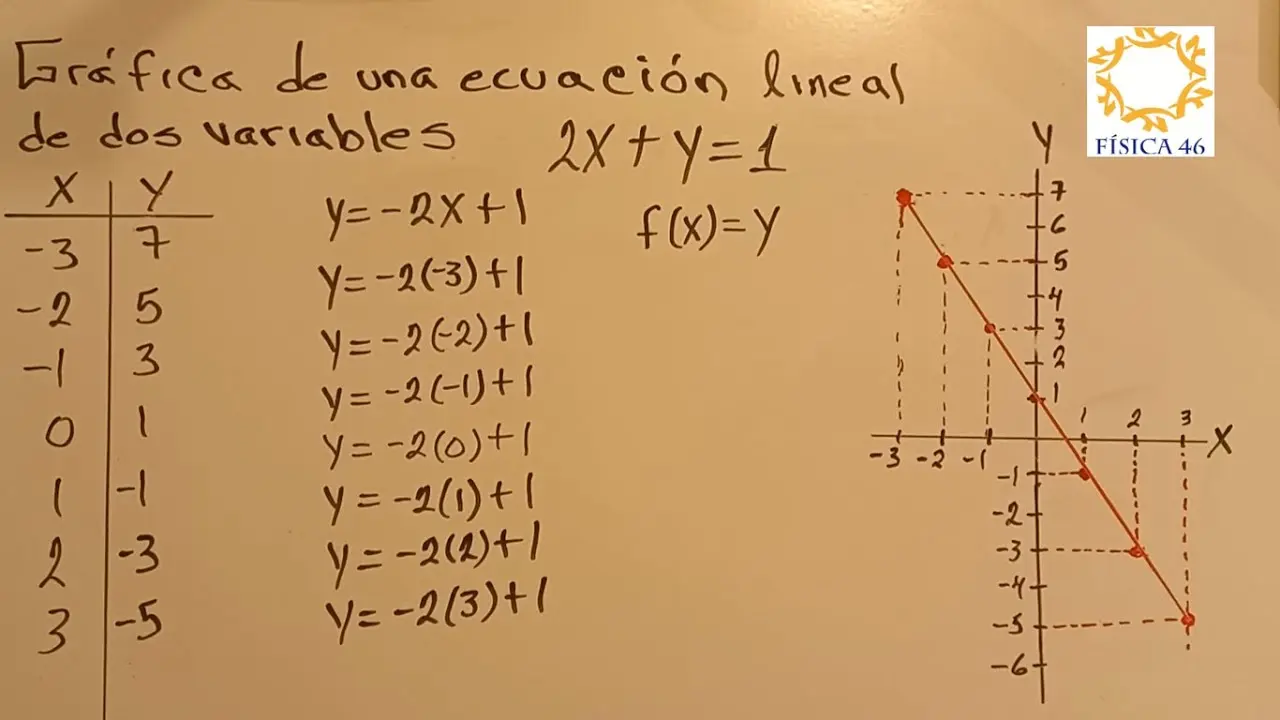 Gráfica de una ecuación lineal
de dos variables
2X + Y = 1
X Y
-3 7
-2 5
-1 3
0 1
1 -1
2 -3
3 -5
Y = -2X + 1
Y = -2(-3) + 1
Y = -2(-2) + 1
Y = -2(-1) + 1
Y = -2(0) + 1
Y = -2(1) + 1
Y = -2(2) + 1
Y = -2(3) + 1
f(x) = Y
FÍSICA 46
Y
7
6
5
4
3
2
1
1 2 3
X
-3 -2 -1
-1
-2
-3
-4
-5
-6